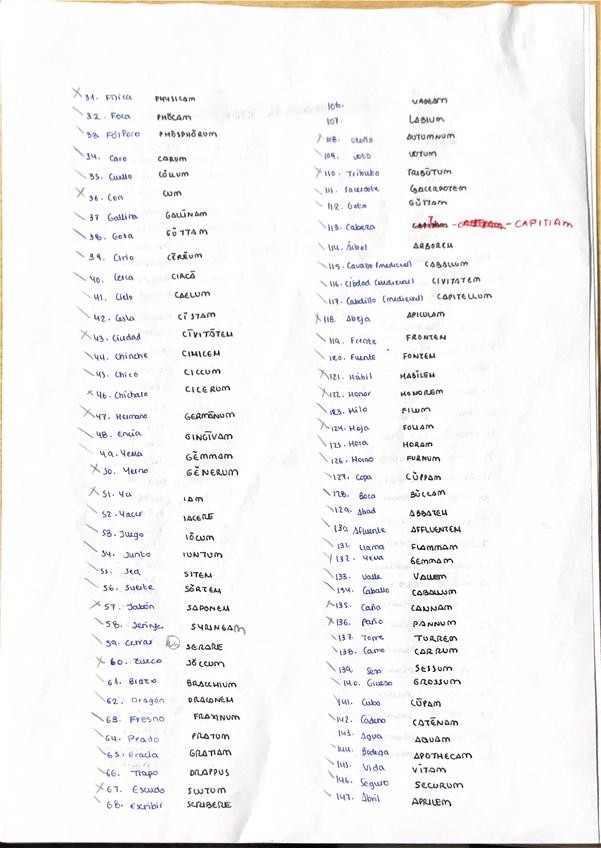 31. Física PHYSICAM
32. Foca PHŌCAM
33. Fósforo PHŌSPHŎRUM
34. Caro CARUM
35. Cuello CŎLLUM
36. Con CUM
37 Gallina GALLĪNAM
38. Gota GŬTTAM
39. Cirio CĒRĔUM
40. Cerca CIRCĀ
41. Cielo CAELUM
42. Cesta CĬSTAM
43. Ciudad CĪVITĀTEM
44. Chinche CIMICEM
45. Chico CICCUM
46. Chícharo CICERUM
47. Hermano GERMĀNUM
48. Encía GINGĪVAM
49. Yema GĔMMAM
50. Yerno GĔNERUM
51. Ya IAM
52. Yacer IACERE
53. Juego IŎCUM
54. Junto IUNTUM
55. Sed SITEM
56. Suerte SŎRTEM
57. Jabón SAPONEM
58. Jeringa SYRINGAM
59. Cerrar SERARE
60. Zueco SŎCCUM
61. Brazo BRACCHIUM
62. Dragón DRACONEM
63. Fresno FRAXINUM
64. Prado PRATUM
65. Gracia GRATIAM
66. Trapo DRAPPUS
67. Escudo SCUTUM
68. Escribir SCRIBERE
106.
107. LABIUM
108. Otoño AUTUMNUM
109. Voto VOTUM
110. Tributo TRIBŪTUM
111. Sacerdote SACERDOTEM
112. Gota GŬTTAM
113. Cabeza - CAPITIAM
114. Árbol ARBOREM
115. Cavallo (medieval) CABALLUM
116. Cibdad (medieval) CIVITATEM
117. Cabdillo (medieval) CAPITELLUM
118. Abeja APICULAM
119. Frente FRONTEM
120. Fuente FONTEM
121. Hábil HABĬLEM
122. Honor HONOREM
123. Hilo FILUM
124. Hoja FOLIAM
125. Hora HORAM
126. Horno FURNUM
127. Copa CŬPPAM
128. Boca BŬCCAM
129. Abad ABBATEM
130. Afluente AFFLUENTEM
131. Llama FLAMMAM
132. Yema GEMMAM
133. Valle VALLEM
134. Caballo CABALLUM
135. Caña CANNAM
136. Paño PANNUM
137. Torre TURREM
138. Carro CARRUM
139. Seso SESSUM
140. Grueso GROSSUM
141. Cuba CŪPAM
142. Cadena CATĒNAM
143. Agua AQUAM
144. Bodega APOTHECAM
145. Vida VĪTAM
146. Seguro SECURUM
147. Abril APRILEM